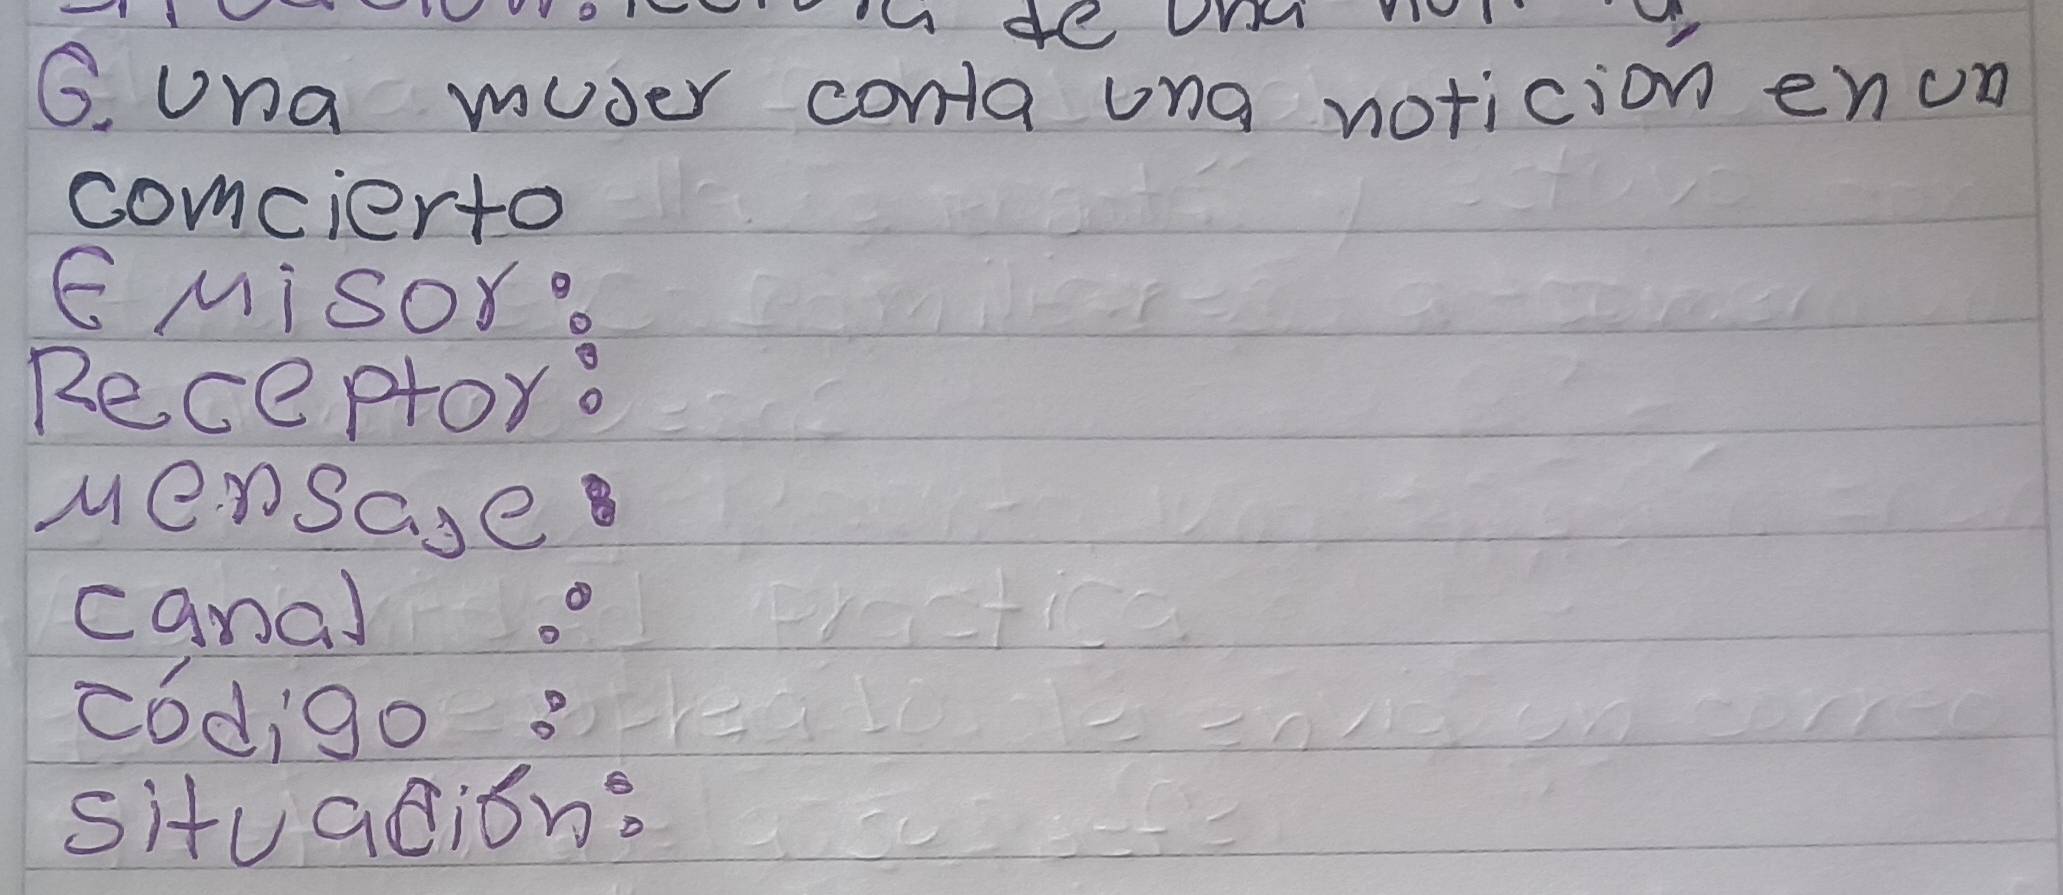 de una
6. Una mujer conta una notición en un
comcierto
Emisor:
Receptor:
Mensaje:
canal :
código :
situación: